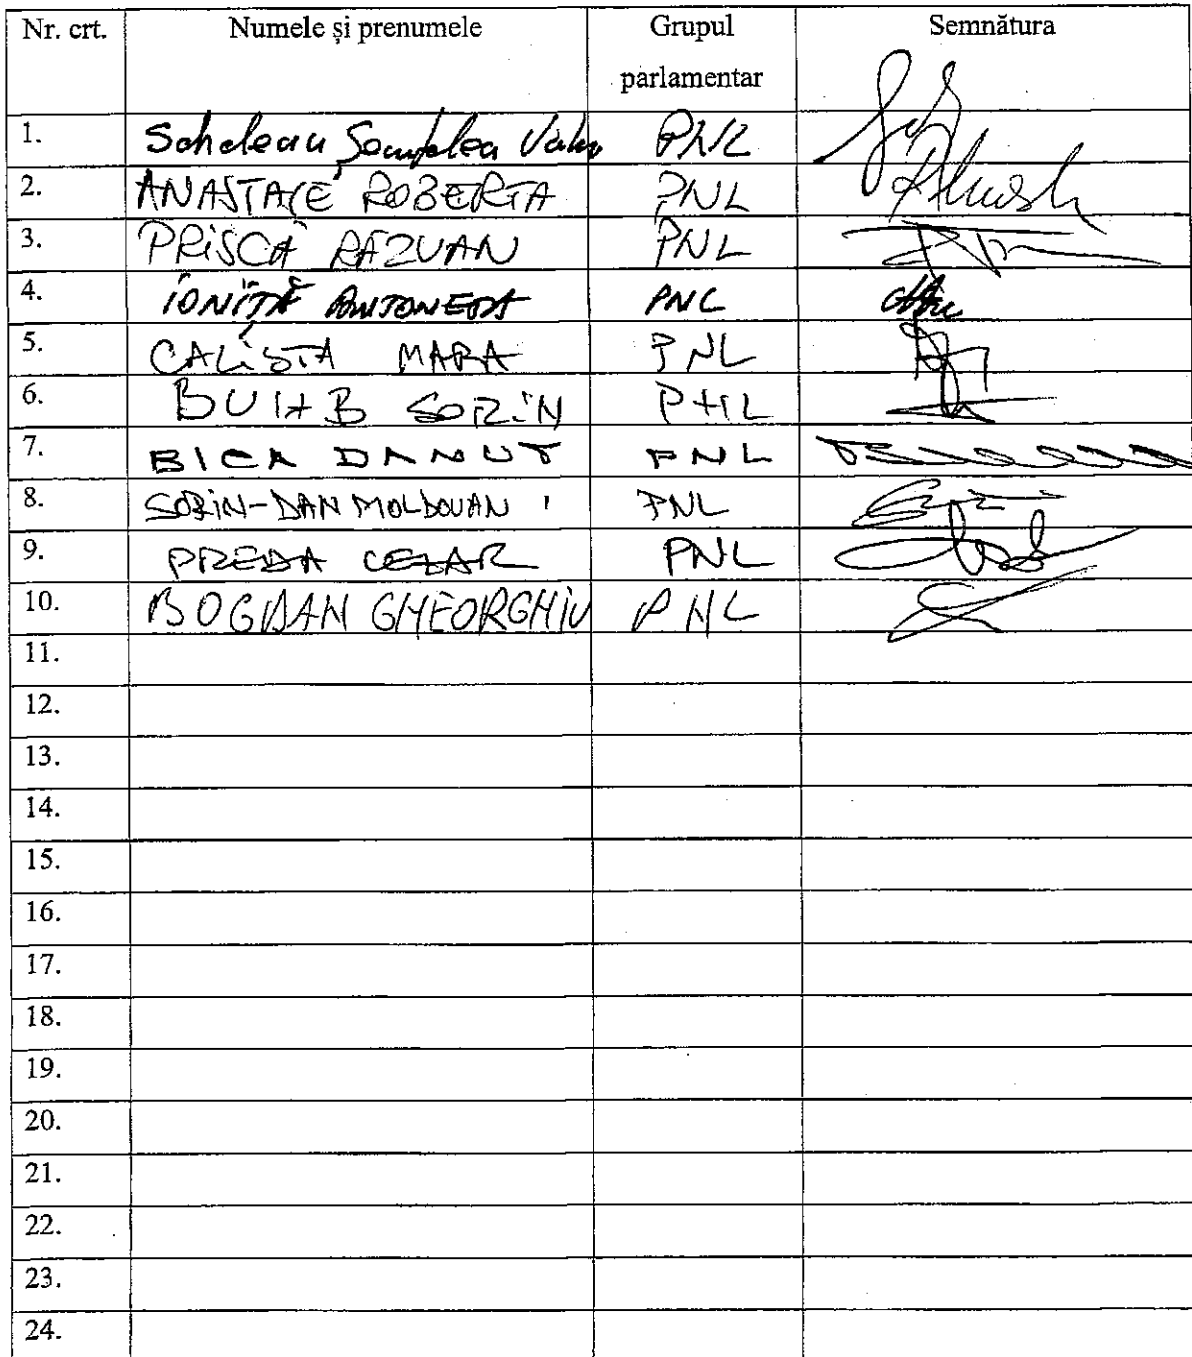 Nr. crt. Numele și prenumele Grupul parlamentar Semnătura
1. PNL
2. ANASTASE ROBERTA PNL
3. PRISCĂ RĂZVAN PNL
4. IONIȚĂ ANTONETA PNL
5. CALISTA MARA PNL
6. SORIN PNL
7. BICA DANUT PNL
8. SORIN-DAN MOLDOVAN PNL
9. PREDA CEZAR PNL
10. BOGDAN GHEORGHIU PNL
11.
12.
13.
14.
15.
16.
17.
18.
19.
20.
21.
22.
23.
24.